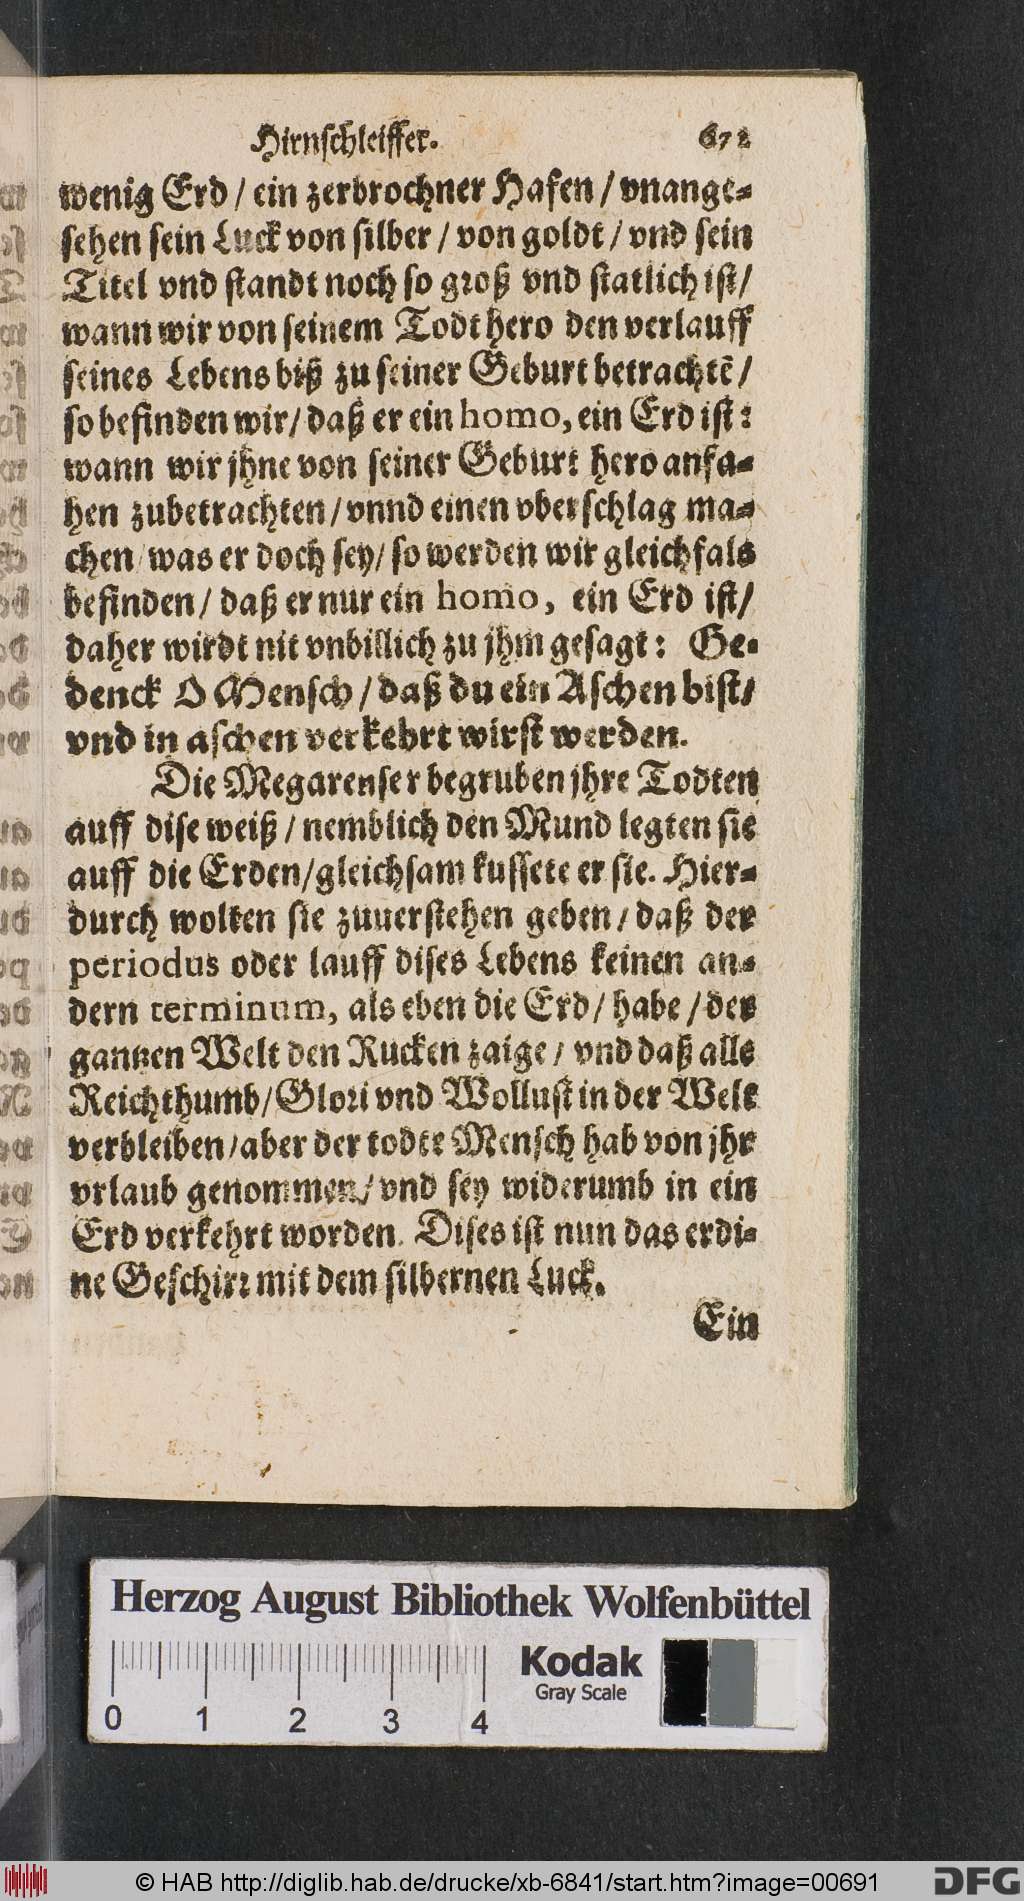 Hirnschleiffer. 671
wenig Erd / ein zerbrochner Hafen / vnange-
sehen sein Luck von silber / von goldt / vnd sein
Titel vnd standt noch so groß vnd statlich ist /
wann wir von seinem Todt hero den verlauff
seines Lebens biß zu seiner Geburt betrachtē /
so befinden wir / daß er ein homo, ein Erd ist:
wann wir jhne von seiner Geburt hero anfa-
hen zubetrachten / vnnd einen vberschlag ma-
chen / was er doch sey / so werden wir gleichfals
befinden / daß er nur ein homo, ein Erd ist /
daher wirdt nit vnbillich zu jhm gesagt: Ge-
denck O Mensch / daß du ein Aschen bist /
vnd in aschen verkehrt wirst werden.
Die Megarenser begruben jhre Todten
auff dise weiß / nemblich den Mund legten sie
auff die Erden / gleichsam kussete er sie. Hier-
durch wolten sie zuuerstehen geben / daß der
periodus oder lauff dises Lebens keinen an-
dern terminum, als eben die Erd / habe / der
gantzen Welt den Rucken zaige / vnd daß alle
Reichthumb / Glori vnd Wollust in der Welt
verbleiben / aber der todte Mensch hab von jhr
vrlaub genommen / vnd sey widerumb in ein
Erd verkehrt worden. Dises ist nun das erdi-
ne Geschirr mit dem silbernen Luck.
Ein
Herzog August Bibliothek Wolfenbüttel
Kodak
Gray Scale
0 1 2 3 4
© HAB http://diglib.hab.de/drucke/xb-6841/start.htm?image=00691
DFG